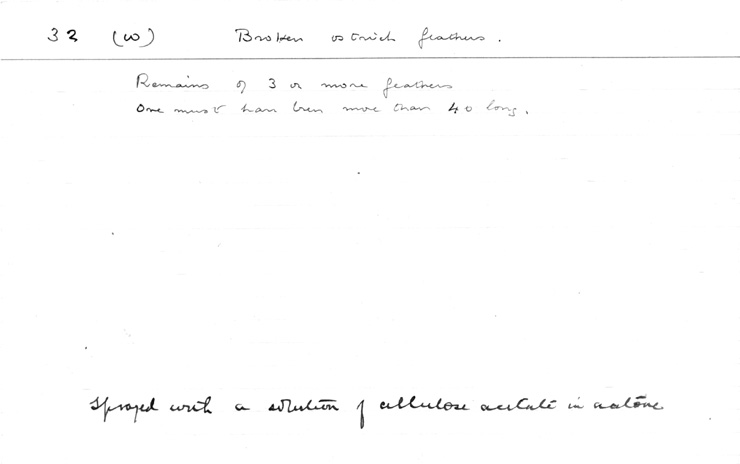 32 (w) Broken ostrich feathers.
Remains of 3 or more feathers
One must have been more than 40 long.
Sprayed with a solution of cellulose acetate in acetone